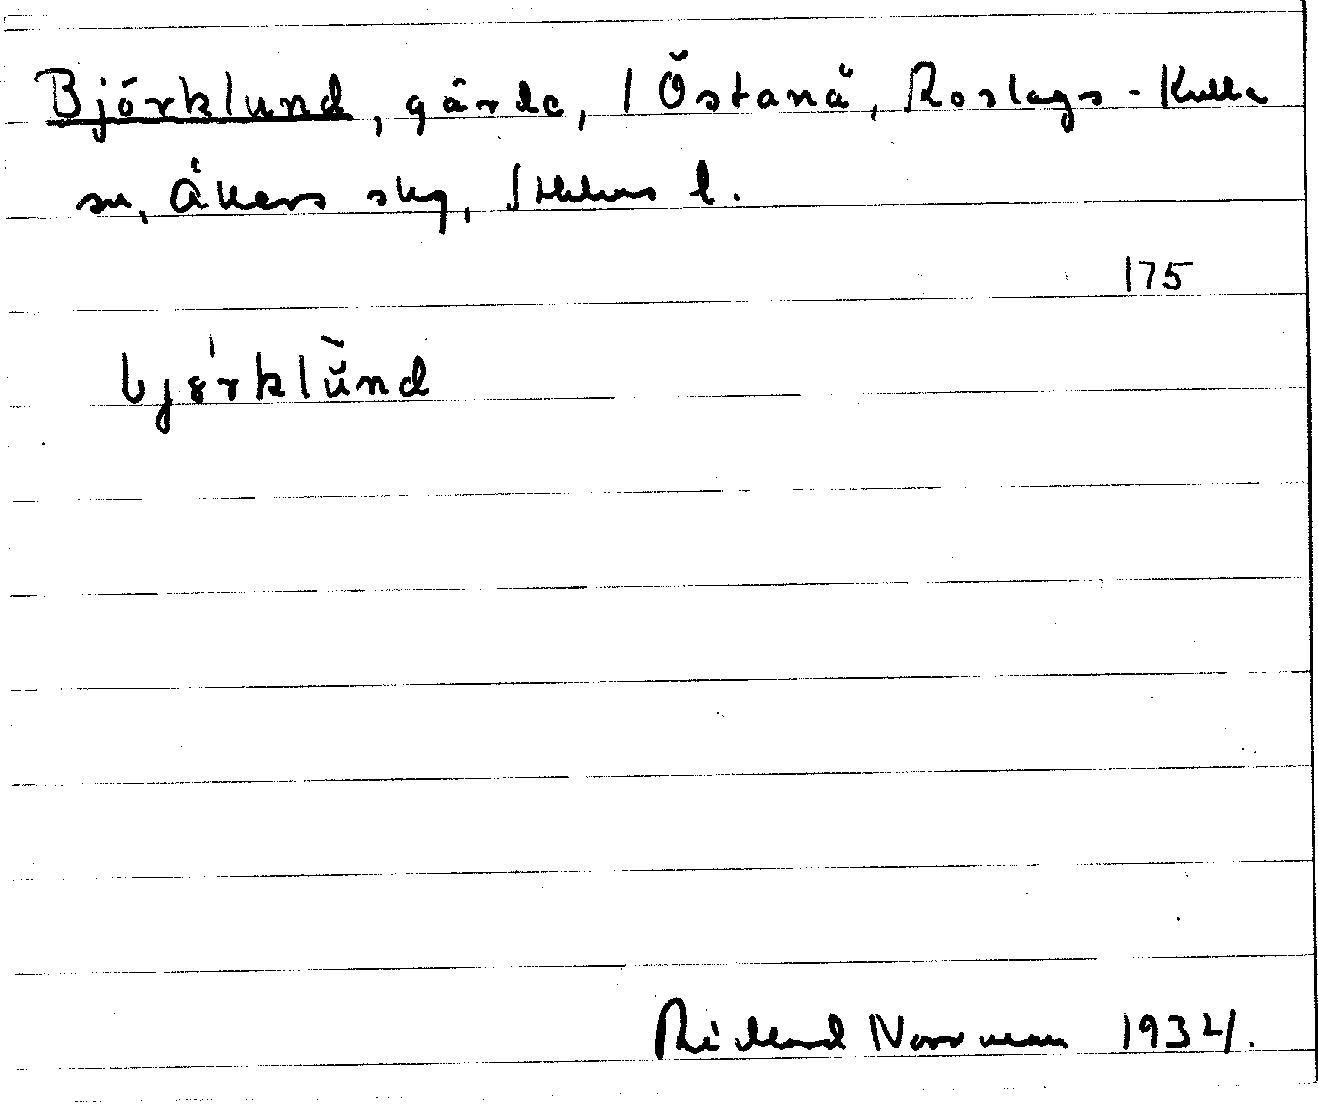 Björklund, gärde, 1 Östanå, Roslags-Kulla
sn, Åkers skg, Sthlms l.
175
bjö́rklùnd
Rickard Norrman 1934.